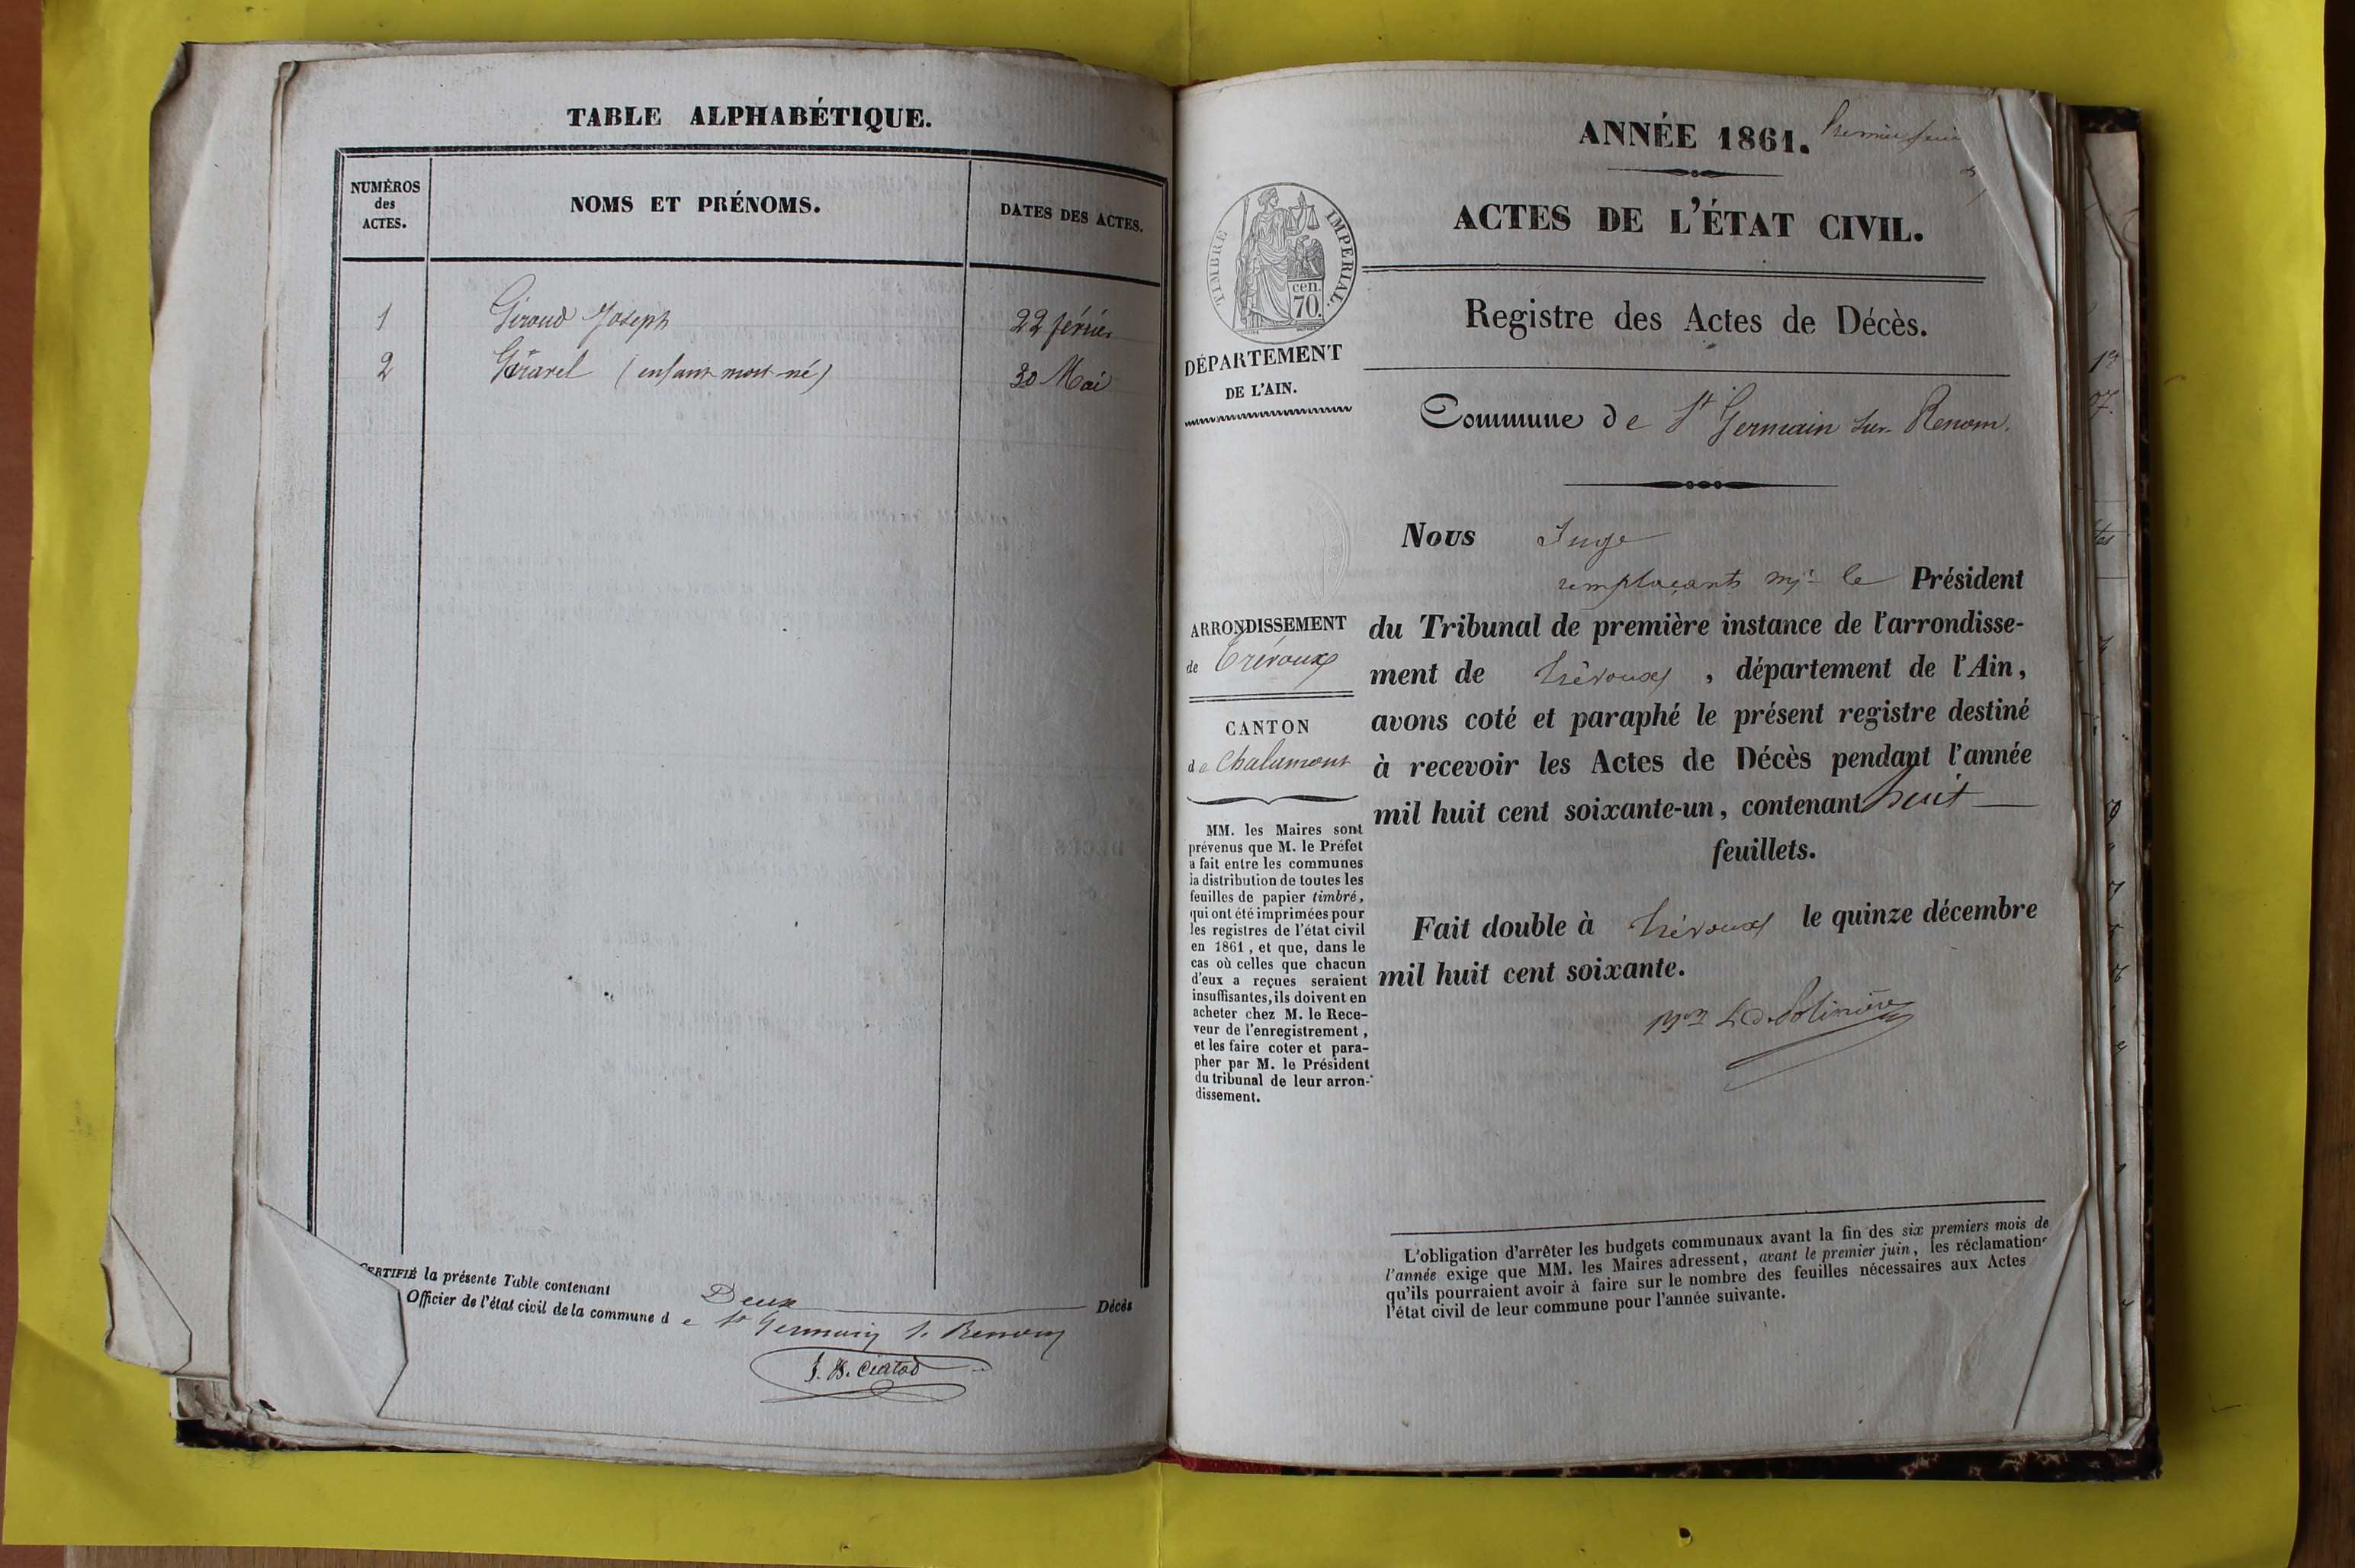 TABLE ALPHABÉTIQUE.
NUMÉROS
des
ACTES.
NOMS ET PRÉNOMS.
DATES DES ACTES.
1 Giroud Joseph 22 février
2 (enfant mort-né) 30 Mai
CERTIFIÉ la présente Table contenant Deux Décès
Officier de l'état civil de la commune de St Germain s. Renom
ANNÉE 1861.
Premier
ACTES DE L'ÉTAT CIVIL.
TIMBRE IMPERIAL.
cen.
70.
Registre des Actes de Décès.
DÉPARTEMENT
DE L'AIN.
Commune de St Germain sur Renom.
Nous Juge
remplaçant mr. le Président
ARRONDISSEMENT
de Trévoux
CANTON
de Chalamont
MM. les Maires sont
prévenus que M. le Préfet
a fait entre les communes
la distribution de toutes les
feuilles de papier timbré,
qui ont été imprimées pour
les registres de l'état civil
en 1861, et que, dans le
cas où celles que chacun
d'eux a reçues seraient
insuffisantes, ils doivent en
acheter chez M. le Rece-
veur de l'enregistrement,
et les faire coter et para-
pher par M. le Président
du tribunal de leur arron-
dissement.
du Tribunal de première instance de l'arrondisse-
ment de Trévoux, département de l'Ain,
avons coté et paraphé le présent registre destiné
à recevoir les Actes de Décès pendant l'année
mil huit cent soixante-un, contenant huit
feuillets.
Fait double à Trévoux le quinze décembre
mil huit cent soixante.
L'obligation d'arrêter les budgets communaux avant la fin des six premiers mois de
l'année exige que MM. les Maires adressent, avant le premier juin, les réclamations
qu'ils pourraient avoir à faire sur le nombre des feuilles nécessaires aux Actes
l'état civil de leur commune pour l'année suivante.